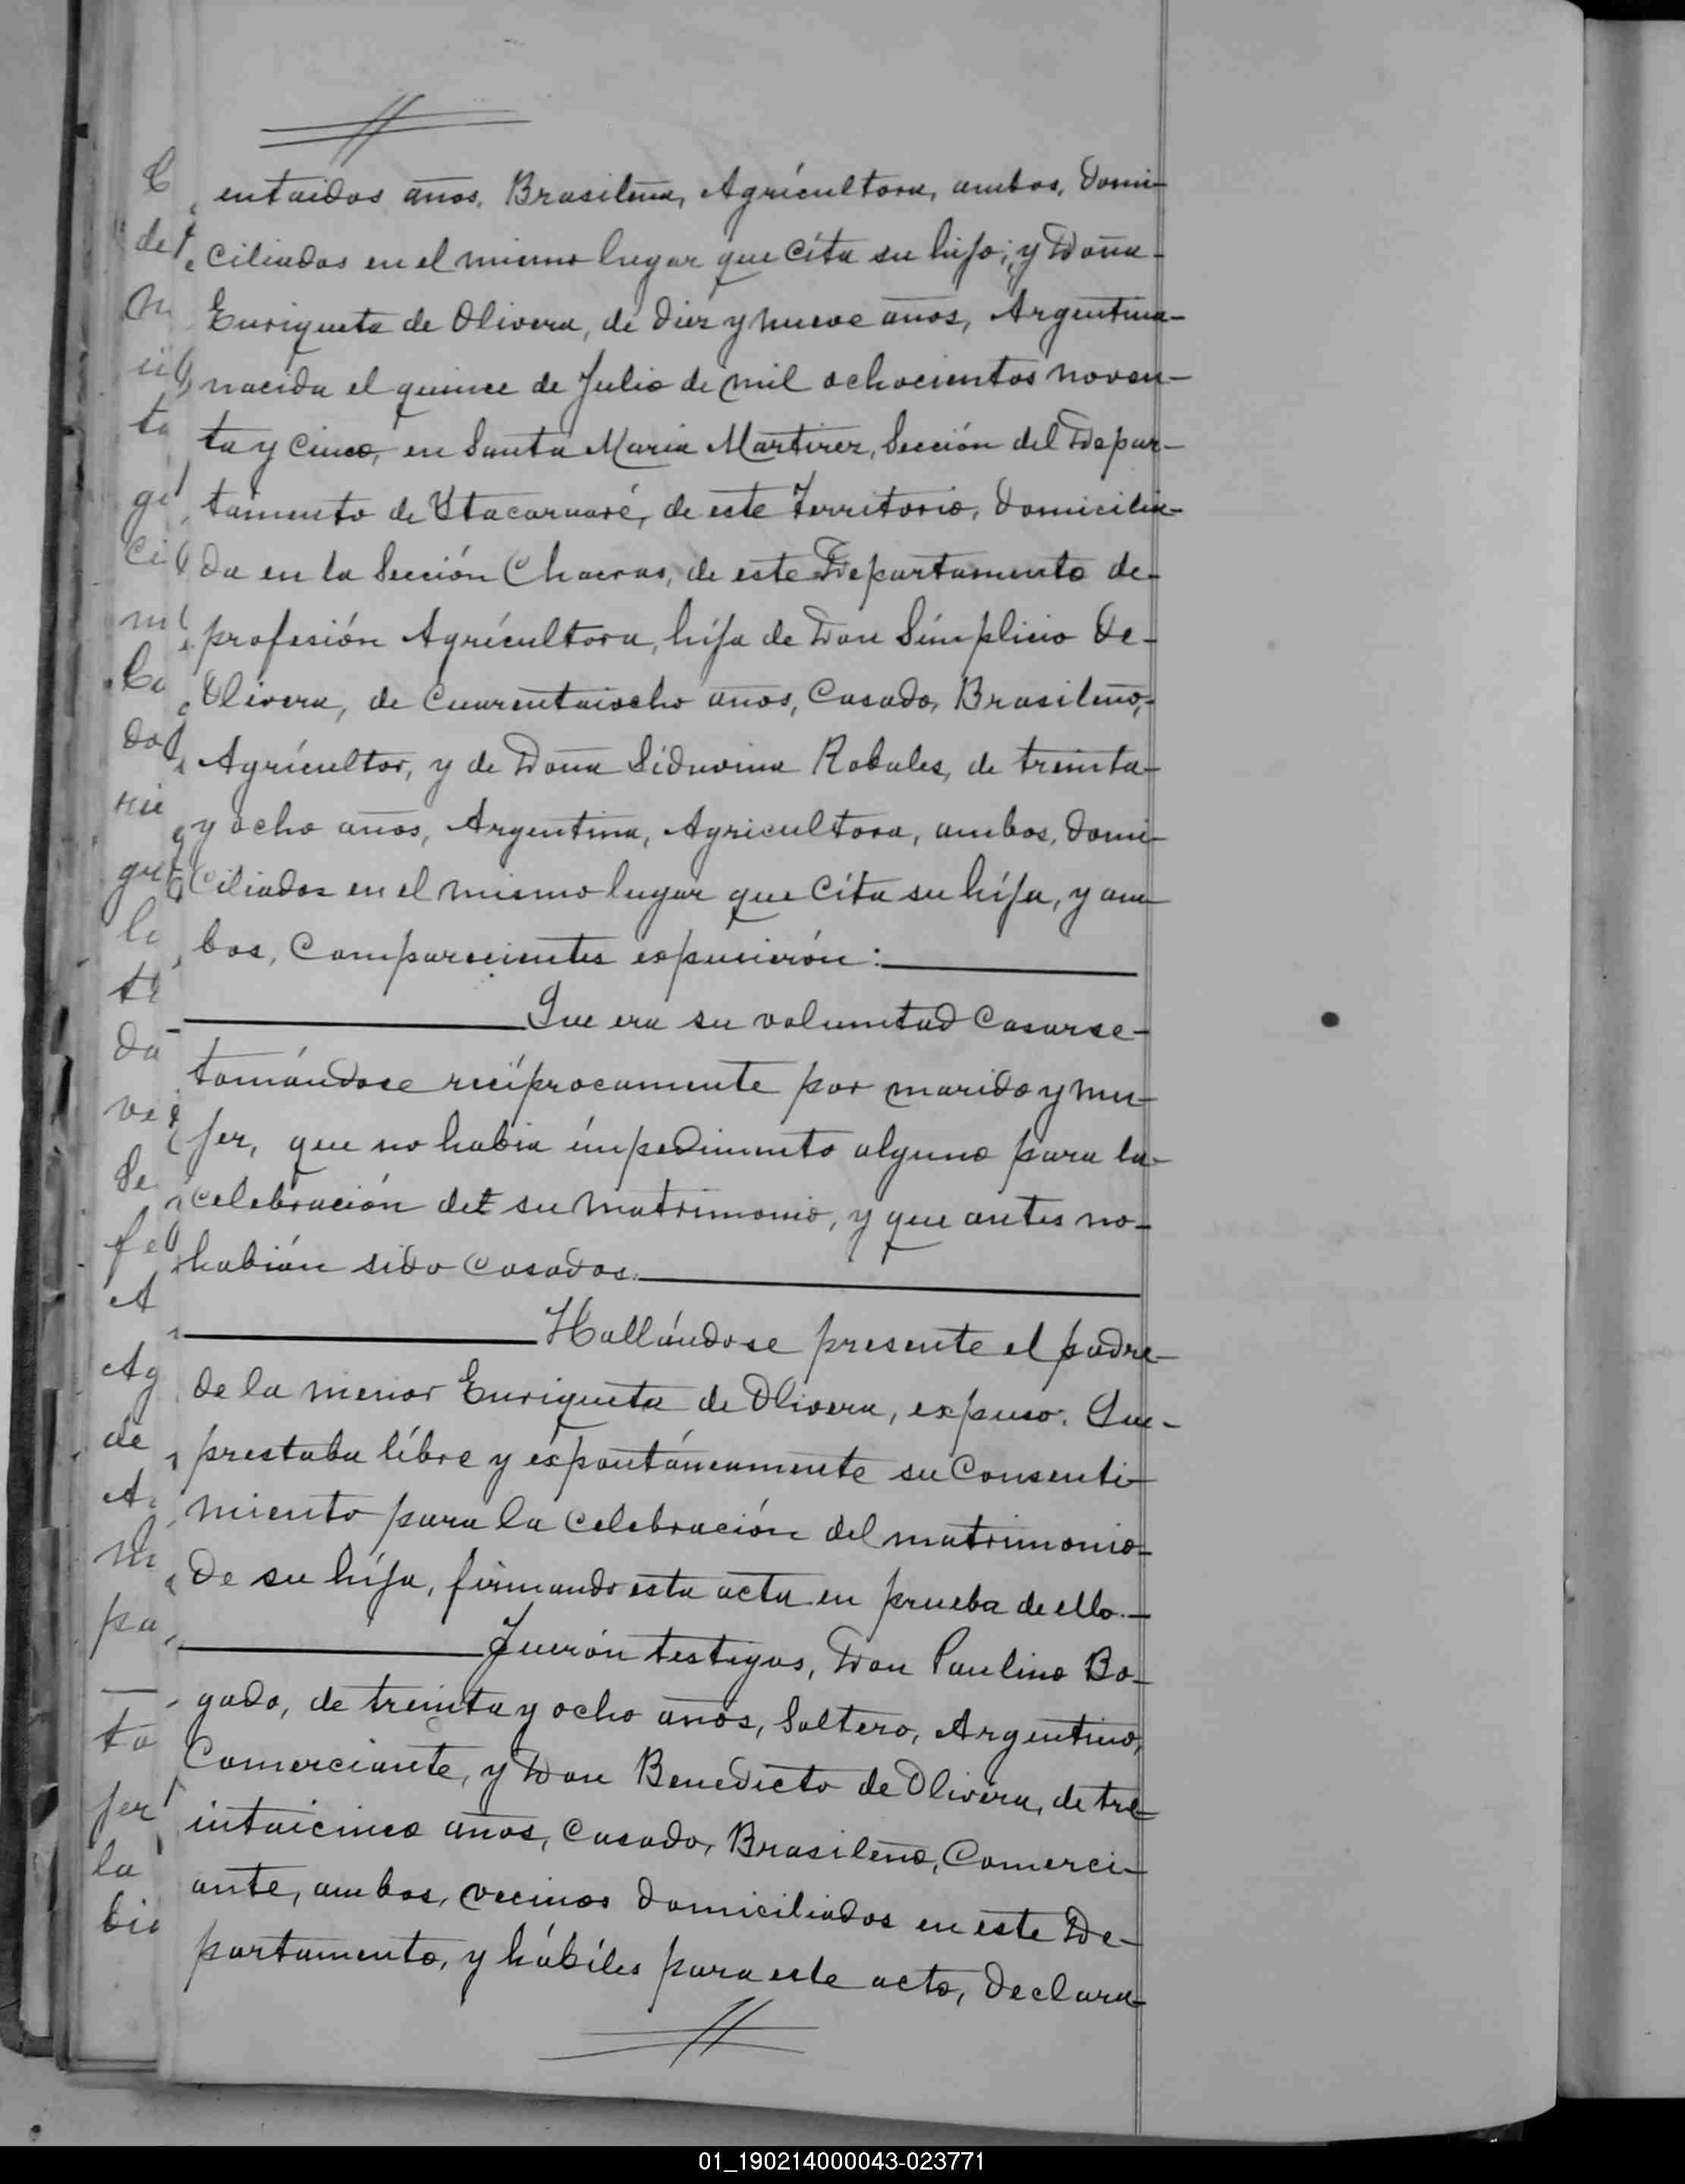 entaidos años, Brasileña, Agrícultora, ambos, domi-
ciliados en el mismo lugar que cíta su hijo; y Doña-
Enriqueta de Olivera, de diez y nueve años, Argentina-
nacida el quince de Julio de mil ochocientos noven-
ta y cinco, en Santa María Martirez, Sección del Depar-
tamento de Itacaruaré, de este Territorio, domicilia-
da en la Sección Chacras, de este Departamento de-
profesión Agrícultora, híja de Don Símplicio de-
Olivera, de cuarentaiocho años, Casado, Brasileño,-
Agrícultor, y de Doña Siduvina Robales, de treinta-
y ocho años, Argentina, Agricultora, ambos, domi-
ciliados en el mismo lugar que cíta su híja, y am-
bos, Comparecientes expusierón:
Que era su voluntad Casarse-
tomándose recíprocamente por marido y mu-
jer, que no habia ímpedimento alguno para la-
celebración det su matrimonio, y que antes no-
habían sido Casados.
Hallándose presente el padre-
de la menor Enriqueta de Olivera, expuso: Que-
prestaba líbre y éspontáneamente su Consenti-
miento para la Celebración del matrimonio-
de su híja, firmando esta acta en prueba de ello.-
Fuerón testigos, Don Paulino Bo-
gado, de treinta y ocho años, Soltero, Argentino,
Comerciante, y Don Benedicto de Olivera, de tre-
intaicinco años, Casado, Brasileño, Comerci-
ante, ambos, vecinos domiciliados en este De-
partamento, y hábiles para este acto, declara-
01_190214000043-023771